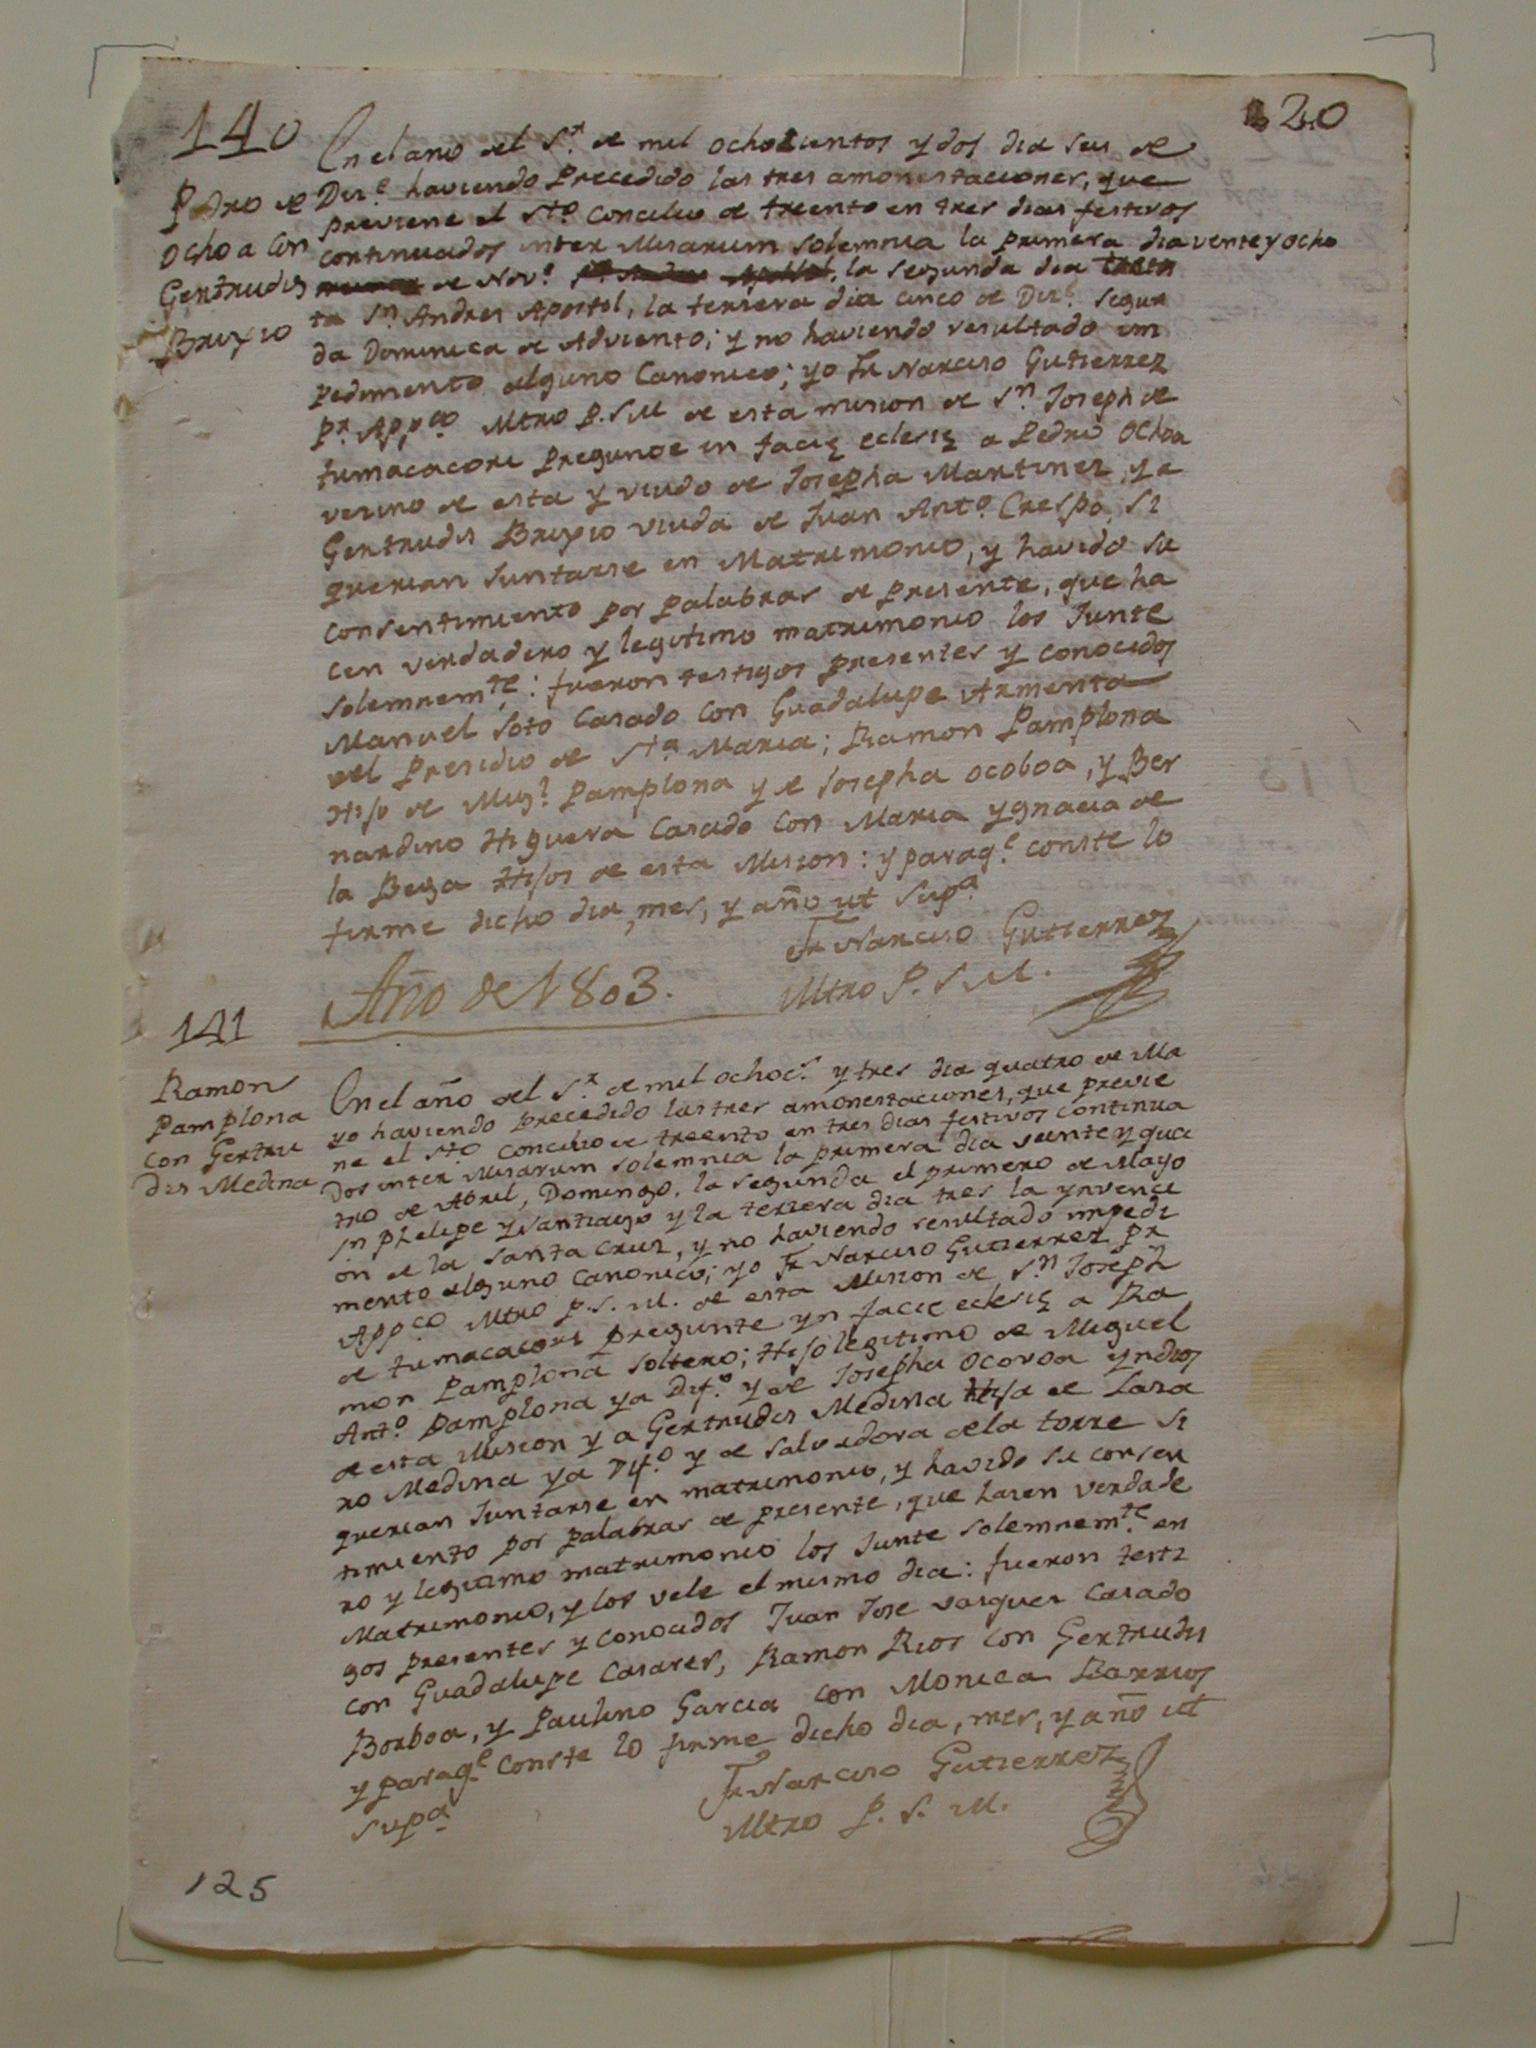 140
120
Pedro de
Ochoa Con
Gertrudis
Brixio
En el año del Sr. de mil ochocientos y dos dia seis de
Dize. haviendo Precedido las tres amonestaciones, que
previene el Sto. Concilio de treento en tres dias festivos
continuados inter Missarum Solemnia la primera dia veinte y ocho
de Nove. la segunda dia trein
ta Sn. Andres Apostol, la tersera dia cinco de Dize. segun
da Dominica de Adviento; y no haviendo resultado im
pedimento alguno Canonico; yo Fr. Narciso Gutierrez
Pr. Appco. Mtro P. S. M. de esta mision de Sn. Joseph de
tumacacori pregunte in facie eclesie a Pedro Ochoa
vesino de esta y viudo de Josepha Martinez, y a
Gertrudis Brixio viuda de Juan Anto. Crespo, si
querian Juntarse en Matrimonio, y havido su
consentimiento por palabras de presente, que ha
cen verdadero y legitimo matrimonio los Junte
solemnemte.: fueron testigos presentes y conocidos
Manuel Soto Casado con Guadalupe Armenta
del Presidio de Sta. Maria; Ramon Pamplona
Hijo de Migl. Pamplona y de Josepha Ocoboa, y Ber
nardino Higuera Casado con Maria Ygnacia de
la Bega Hijos de esta Mision: y paraqe. conste lo
firme dicho dia, mes, y año ut supa.
Fr. Narciso Gutierrez
Mtro P. S. M.
Año de 1803.
141
Ramon
Pamplona
con Gertru
dis Medina
En el año del Sr. de mil ochocs. y tres dia quatro de Ma
yo haviendo precedido las tres amonestaciones, que previe
ne el Sto. Concilio de treento en tres dias festivos continua
dos inter Missarum solemnia la primera dia veinte y qua
tro de Abril, Domingo, la segunda el primero de Mayo
Sn Phelipe y Santiago y la tersera dia tres la ynvenci
on de la Santa Cruz, y no haviendo resultado impedi
mento alguno canonico; yo Fr. Narciso Gutierrez Pr
Appco Mtro P. S. M. de esta Mision de Sn. Joseph
de tumacacori pregunte yn facie eclesie a Ra
mon Pamplona soltero; Hijo legitimo de Miguel
Anto. Pamplona ya Difo. y de Josepha Ocovoa yndios
de esta Mision y a Gertrudis Medina Hija de Laza
ro Medina ya Difo. y de Salvadora de la torre si
querian Juntarse en matrimonio, y havido su consen
timiento por palabras de presente, que hasen verdade
ro y legitimo matrimonio los Junte solemnemte. en
Matrimonio, y los vele el mismo dia: fueron testi
gos presentes y conocidos Juan Jose Vasquez Casado
con Guadalupe Casares, Ramon Rios con Gertrudis
Borboa, y Paulino Garcia con Monica Barrios
y paraqe. conste lo firme dicho dia, mes, y año ut
supa.
Fr. Narciso Gutierrez
Mtro P. S. M.
125